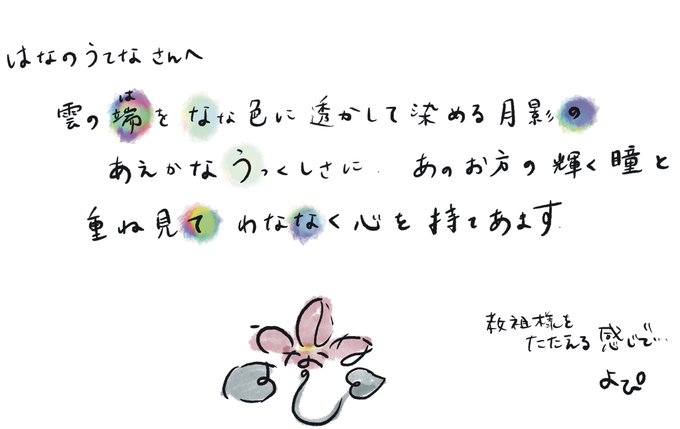 はなのうてなさんへ
雲の端をなな色に透かして染める月影の
は
あえかなうつくしさに あのお方の輝く瞳と
重ね見て わななく心を持てあます
なな
の
よ
教祖様を
たたえる感じで…
よぴ